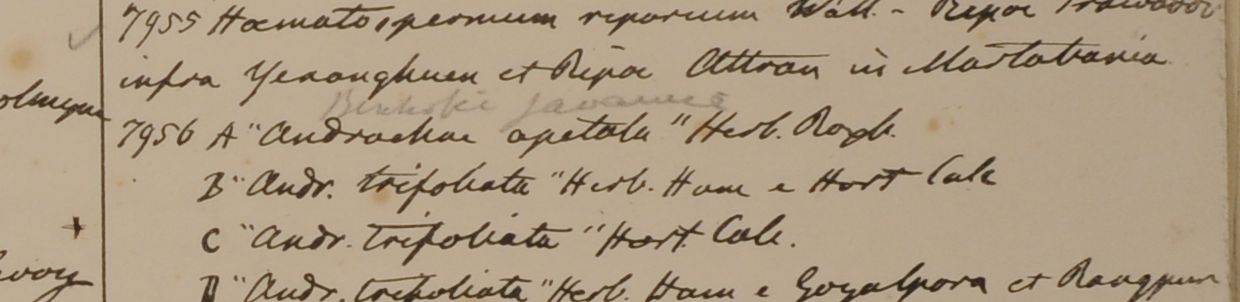 7955 Hæmatospermum riparium Wall. - Ripæ Irawaddi
infra Yenanghuen et Ripæ Attran in Martabania
olmeyne
Bischofia javanica
7956 A "Andrachne apetala" Herb. Roxb.
B "Andr. trifoliata" Herb. Ham e Hort Calc
C "Andr. trifoliata" Hort. Calc.
D "Andr. trifoliata" Herb. Ham e Goyalpora et Rangpur